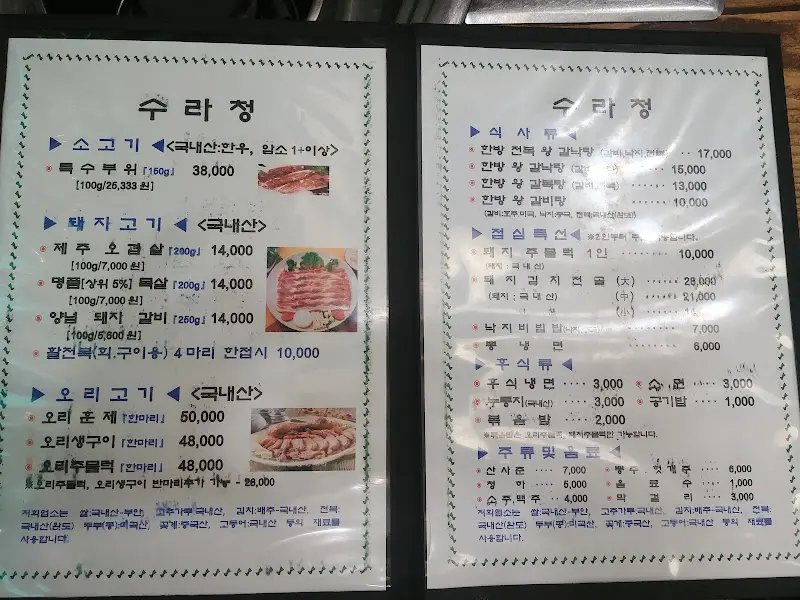 수라청
▶ 소고기 ◀ <국내산:한우, 암소 1+이상>
특수부위 『150g』 38,000
[100g/25,333 원]
▶ 돼지고기 ◀ <국내산>
제주 오겹살 『200g』 14,000
[100g/7,000 원]
명품[상위 5%] 목살 『200g』 14,000
[100g/7,000 원]
양념 돼지 갈비 『250g』 14,000
[100g/5,600 원]
활전복(회.구이용) 4 마리 한접시 10,000
▶ 오리고기 ◀ <국내산>
오리 훈제 『한마리』 50,000
오리생구이 『한마리』 48,000
오리주물럭 『한마리』 48,000
※오리주물럭, 오리생구이 반마리추가 가능 - 28,000
저희업소는 쌀:국내산-부안, 고추가루:국내산, 김치:배추-국내산, 전복:
국내산(완도) 두부(콩):미국산, 꽃게:중국산, 고등어:국내산 등의 재료를
사용합니다.
수라청
▶ 식 사 류 ◀
한방 전복 왕 갈낙탕 (갈비,낙지,전복) 17,000
한방 왕 갈낙탕 15,000
한방 왕 갈복탕 13,000
한방 왕 갈비탕 10,000
(갈비:호주.미국, 낙지:중국, 전복:국내산(완도))
▶ 점심특선 ◀ ※2인부터
돼지 주물럭 1인 10,000
(돼지 : 국내산)
돼지김치전골 (大) 28,000
(돼지 : 국내산) (中) 21,000
(小)
낙지비빔밥 7,000
냉면 6,000
▶ 후식류 ◀
후식냉면 3,000 소면 3,000
누룽지(국내산) 3,000 공기밥 1,000
볶음밥 2,000
※볶음밥은 오리주물럭, 돼지주물럭만 가능합니다.
▶ 주류및음료 ◀
산사춘 7,000 6,000
청하 5,000 음료수 1,000
소주,맥주 4,000 막걸리 3,000
저희업소는 쌀:국내산-부안, 고추가루:국내산, 김치:배추-국내산, 전복:
국내산(완도) 두부(콩):미국산, 꽃게:중국산, 고등어:국내산 등의 재료를
사용합니다.